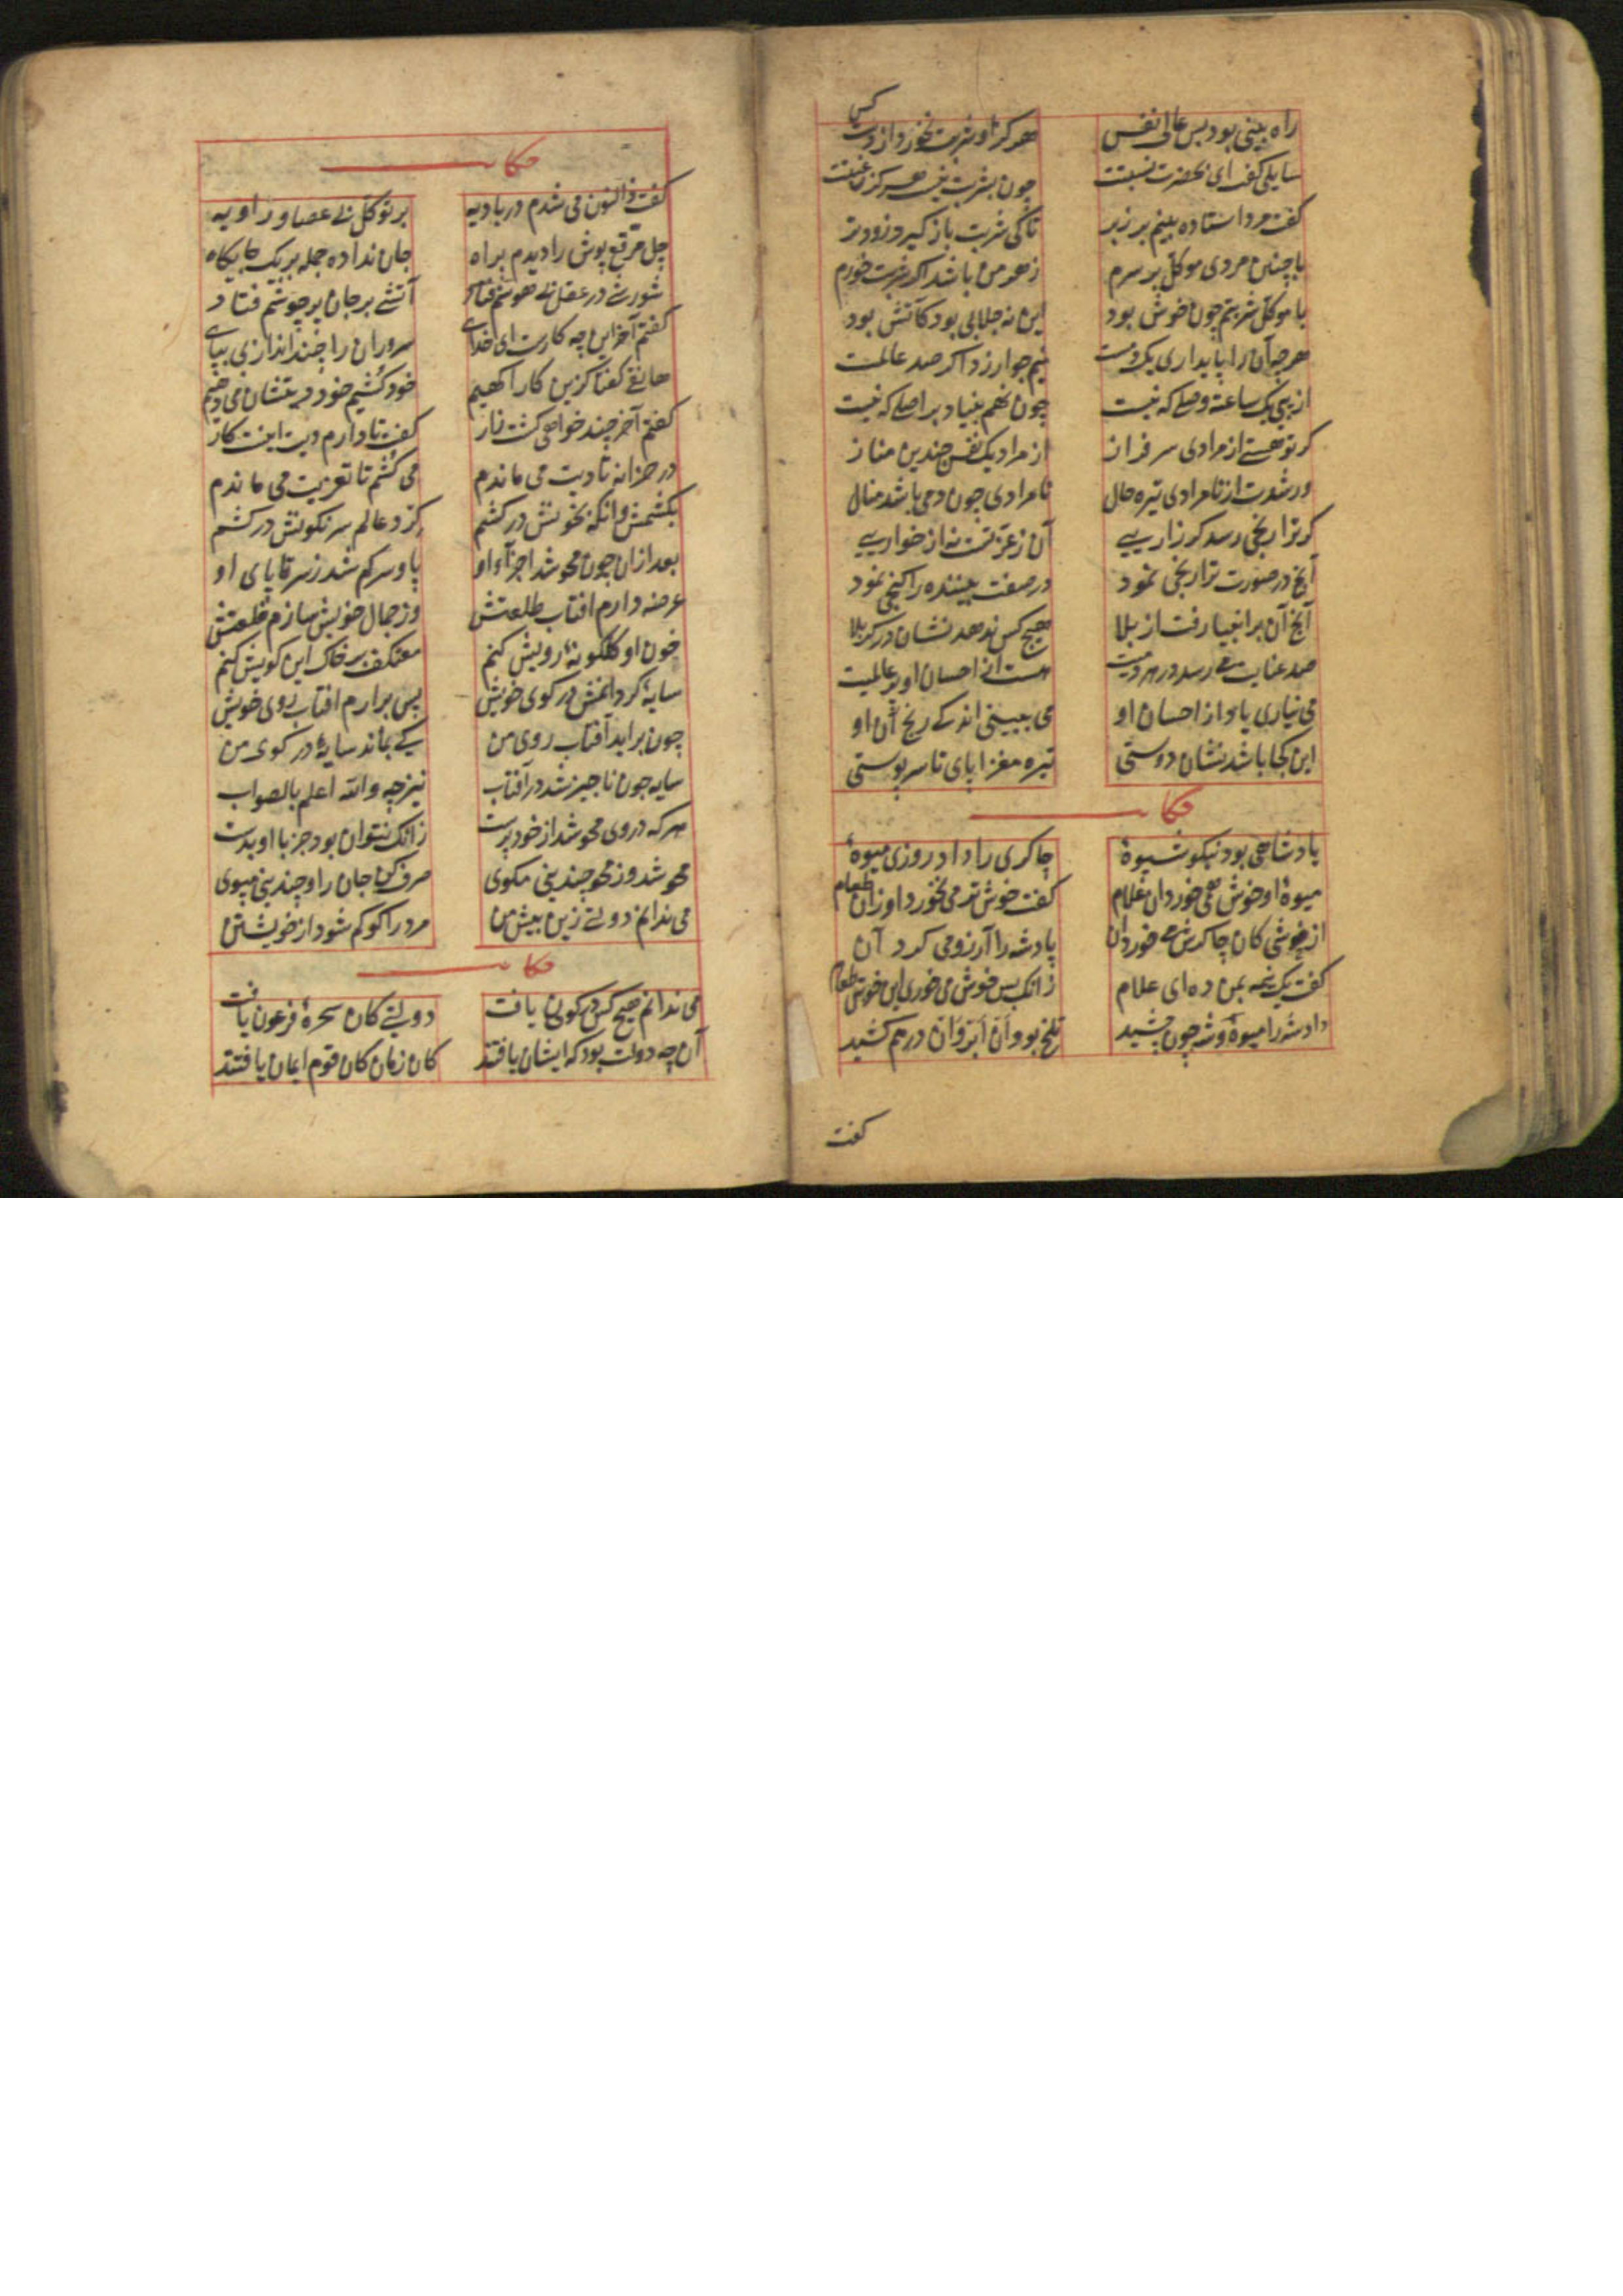 راه بینی بود بس عالی نفس هرگز او شربت نخورد از دست کس
سایلی گفت ای بحضرت نسبتت چون بشربت نیست هرگز رغبتت
گفت مرد استاده بینم بر زبر تا کی شربت باز گیرد زودتر
با چنین مردی موکل بر سرم زهر من باشد اگر شربت خورم
با موکل شربتم چون خوش بود این نه جلابی بود کآتش بود
هرچه آن را پایداری یک دمست نیم جو ارزد اگر صد عالمست
از پی یک ساعته وصلی که نیست چون نهم بنیاد بر اصلی که نیست
گر تو هستی از مرادی سرفراز از مراد یک نفس چندین مناز
ور شدت از نامرادی تیره حال نامرادی چون دمی باشد منال
گر ترا رنجی رسد گر زاریی آن ز عزتست نه از خواریی
آنچ در صورت ترا رنجی نمود در صفت بیننده را گنجی نمود
آنچ آن بر انبیا رفت از بلا هیچ کس ندهد نشان در کربلا
صد عنایت می رسد در هر دمیت هست از احسان او بر عالمیت
می نیاری یاد از احسان او می ببینی اندکی رنج آن او
این کجا باشد نشان دوستی تیره مغزا پای تا سر پوستی
حکا
پادشاهی بود نیکو شیوهٔ چاکری را داد روزی میوهٔ
میوهٔ او خوش همی خورد آن غلام گفت خوش تر می نخورد او زان طعام
از خوشی کان چاکرش می خورد آن پادشه را آرزو می کرد آن
گفت یک نیمه بمن ده ای غلام زانک بس خوش می خوری این خوش طعام
داد شه را میوهٔ و شه چون چشید تلخ بود و آن ابروان درهم کشید
گفت
حکا
گفت ذالنون می شدم در بادیه بر توکل بی عصا و زاویه
چل مرقع پوش را دیدم براه جان نداده جمله بر یک جایگاه
شورشی در عقل بی هوشم فتاد آتشی بر جان پرجوشم فتاد
گفتم آخر این چه کارست ای خدای سروران را چند اندازی بپای
هاتفی گفتا کزین کار آگهیم خود کشیم خود دیتشان می دهیم
گفتم آخر چند خواهی کشت زار گفت تا دارم دیت اینست کار
در خزانه تا دیت می ماندم می کشم تا تعزیت می ماندم
بکشمش وانگه بخونش درکشم گرد عالم سرنگونش درکشم
بعد ازان چون محو شد اجزآء او پا و سر گم شد ز سر تا پای او
عرضه دارم افتاب طلعتش وز جمال خویش سازم خلعتش
خون او گلگونهٔ رویش کنم معتکف بر خاک این کویش کنم
سایهٔ گردانمش در کوی خویش پس برارم افتاب روی خویش
چون براید آفتاب روی من کی بماند سایهٔ در کوی من
سایه چون ناچیز شد در آفتاب نیز چه والله اعلم بالصواب
هرکه در وی محو شد از خود برست زانک نتوان بود جز با او بدست
محو شد وز محو چندینی مگوی صرف کن جان را و چندینی مپوی
می ندانم دولتی زین بیش من مرد را کو گم شود از خویشتن
حکا
می ندانم هیچ کس در کون یافت دولتی کان سحرهٔ فرعون یافت
آن چه دولت بود که ایشان یافتند کان زمان کان قوم ایمان یافتند